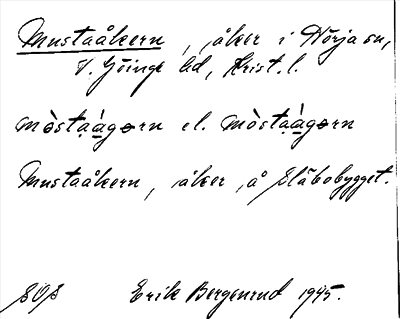 Mustaåkern, åker i Nörja sn,
V. Göinge hd, Krist. l.
mòsta̱àgɵrn el. mòsta̱àgɵrn
Mustaåkern, åker å Slåbobygget.
SOS Erik Bergenrud 1945.